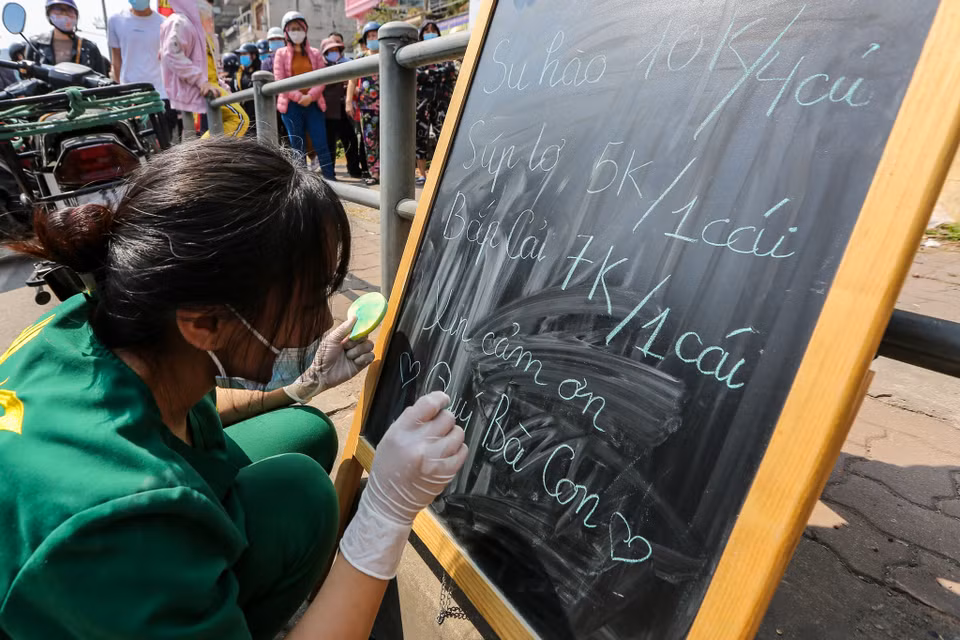 Su hào 10K/4 củ
Súp lơ 5K/1 cái
Bắp Cải 7K/1 cái
Xin cảm ơn
Quý Bà Con